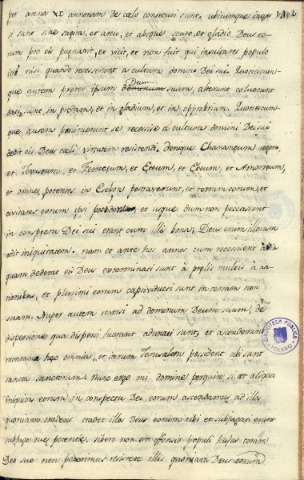 per annos 40 annonam de coelo consecuti sunt, ubicumque ingressi
sunt sine sagitta, et arcu, et absque scuto, et gladio Deus eo-
rum pro eis pugnavit, et vicit, et non fuit qui insultaret populo
isti nisi quando recesserunt a cultura domini Dei sui. Quotiescum-
que autem praeter ipsum Deum suum, alterum coluerunt
in praedam, et in gladium, et in opprobrium. Quotiescum-
que autem poenituerunt se recessisse a cultura domini Dei sui
dedit eis Deus coeli virtutem resistendi, denique Chananaeum regem,
et Jebusaeum, et Pherezaeum, et Etheum, et Eveum, et Amorrhaeum,
et omnes potentes in Esebon prostraverunt, et terras eorum, et
civitates eorum ipsi possederunt, et usque dum non peccarent
in conspectu Dei sui erant cum illis bona, Deus enim illorum
odit iniquitatem. nam et ante hos annos cum recessissent a via
quam dederat eis Deus exterminati sunt a proeliis multis a na-
tionibus, et plurimi eorum captivi ducti sunt in terram non
suam. Nuper autem reversi ad dominum Deum suum, de
dispersione qua dispersi fuerant adunati sunt, et ascenderunt
montana haec omnia, et iterum Jerusalem possident ubi sunt
sancta sanctorum. Nunc ergo mi domine perquire si est aliqua
iniquitas eorum in conspectu Dei eorum, ascendamus ad illos
quoniam tradens tradet illos Deus eorum tibi et subjugati erunt
sub jugo potentiae, si vero non est offensio populi hujus coram
Deo suo non poterimus resistere illis quoniam Deus eorum